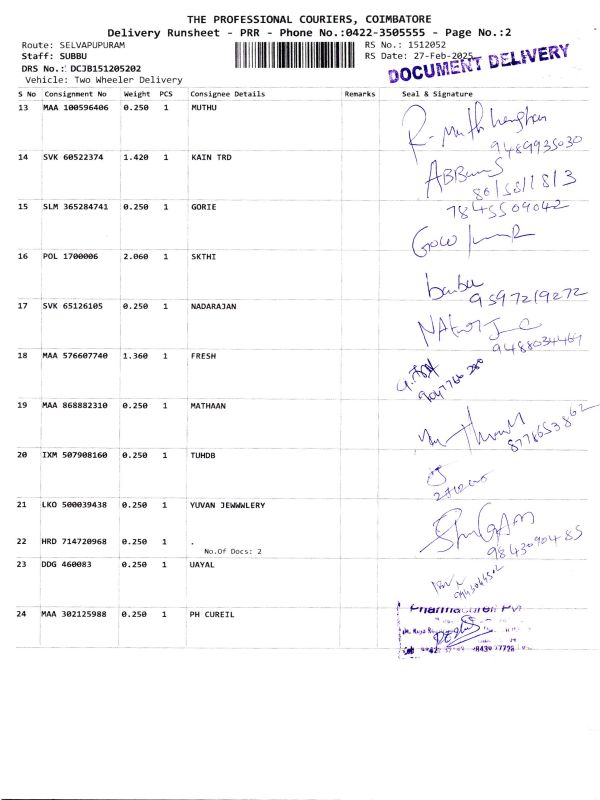 THE PROFESSIONAL COURIERS, COIMBATORE
Delivery Runsheet - PRR - Phone No.:0422-3505555 - Page No.:2
Route: SELVAPUPURAM RS No.: 1512052
Staff: SUBBU RS Date: 27-Feb-2025
DRS No.: DCJB151205202
DOCUMENT DELIVERY
Vehicle: Two Wheeler Delivery
S No Consignment No Weight PCS Consignee Details Remarks Seal & Signature
13 MAA 100596406 0.250 1 MUTHU
9489935030
14 SVK 60522374 1.420 1 KAIN TRD
15 SLM 365284741 0.250 1 GORIE
7845509042
16 POL 1700006 2.060 1 SKTHI
9597219272
17 SVK 65126105 0.250 1 NADARAJAN
9488034469
18 MAA 576607740 1.360 1 FRESH
19 MAA 868882310 0.250 1 MATHAAN
8778653862
20 IXM 507908160 0.250 1 TUHDB
21 LKO 500039438 0.250 1 YUVAN JEWWWLERY
22 HRD 714720968 0.250 1 .
No.Of Docs: 2
9843090485
23 DDG 460083 0.250 1 UAYAL
24 MAA 302125988 0.250 1 PH CUREIL